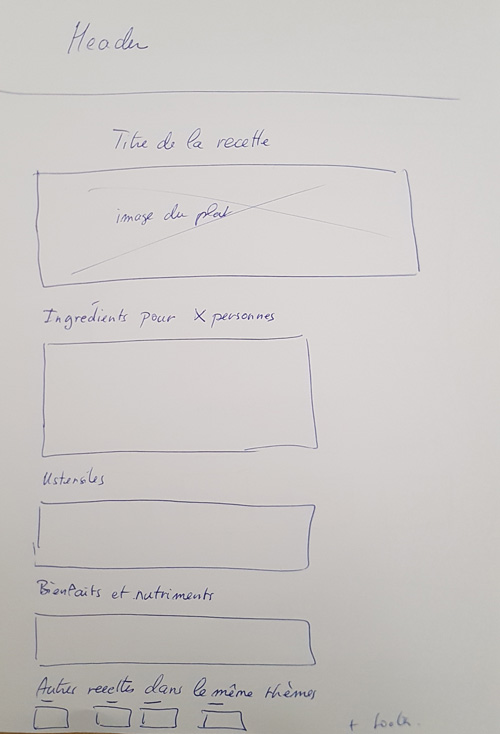 Header
Titre de la recette
image du plat
Ingrédients pour X personnes
Ustensiles
Bienfaits et nutriments
Autres recettes dans le même thèmes
+